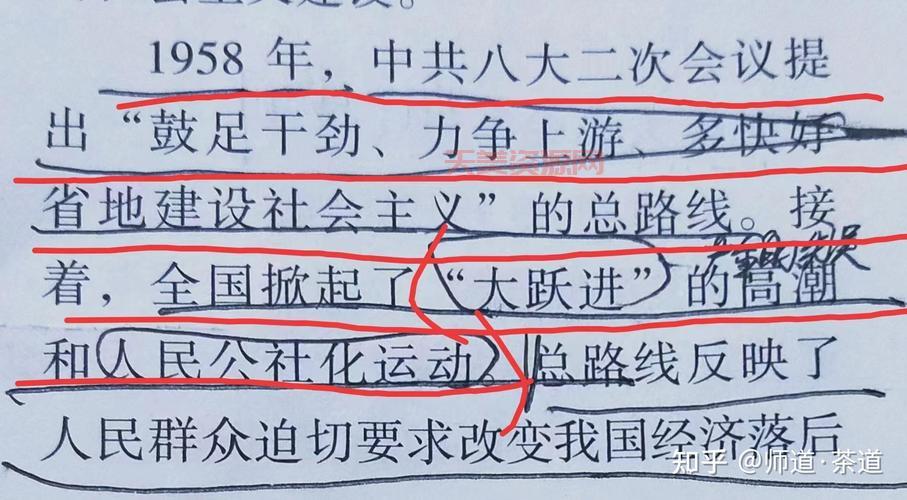 1958 年，中共八大二次会议提
出“鼓足干劲、力争上游、多快好
省地建设社会主义”的总路线。接
着，全国掀起了“大跃进”的高潮
和人民公社化运动。总路线反映了
人民群众迫切要求改变我国经济落后
天美资源网
知乎 @师道·茶道